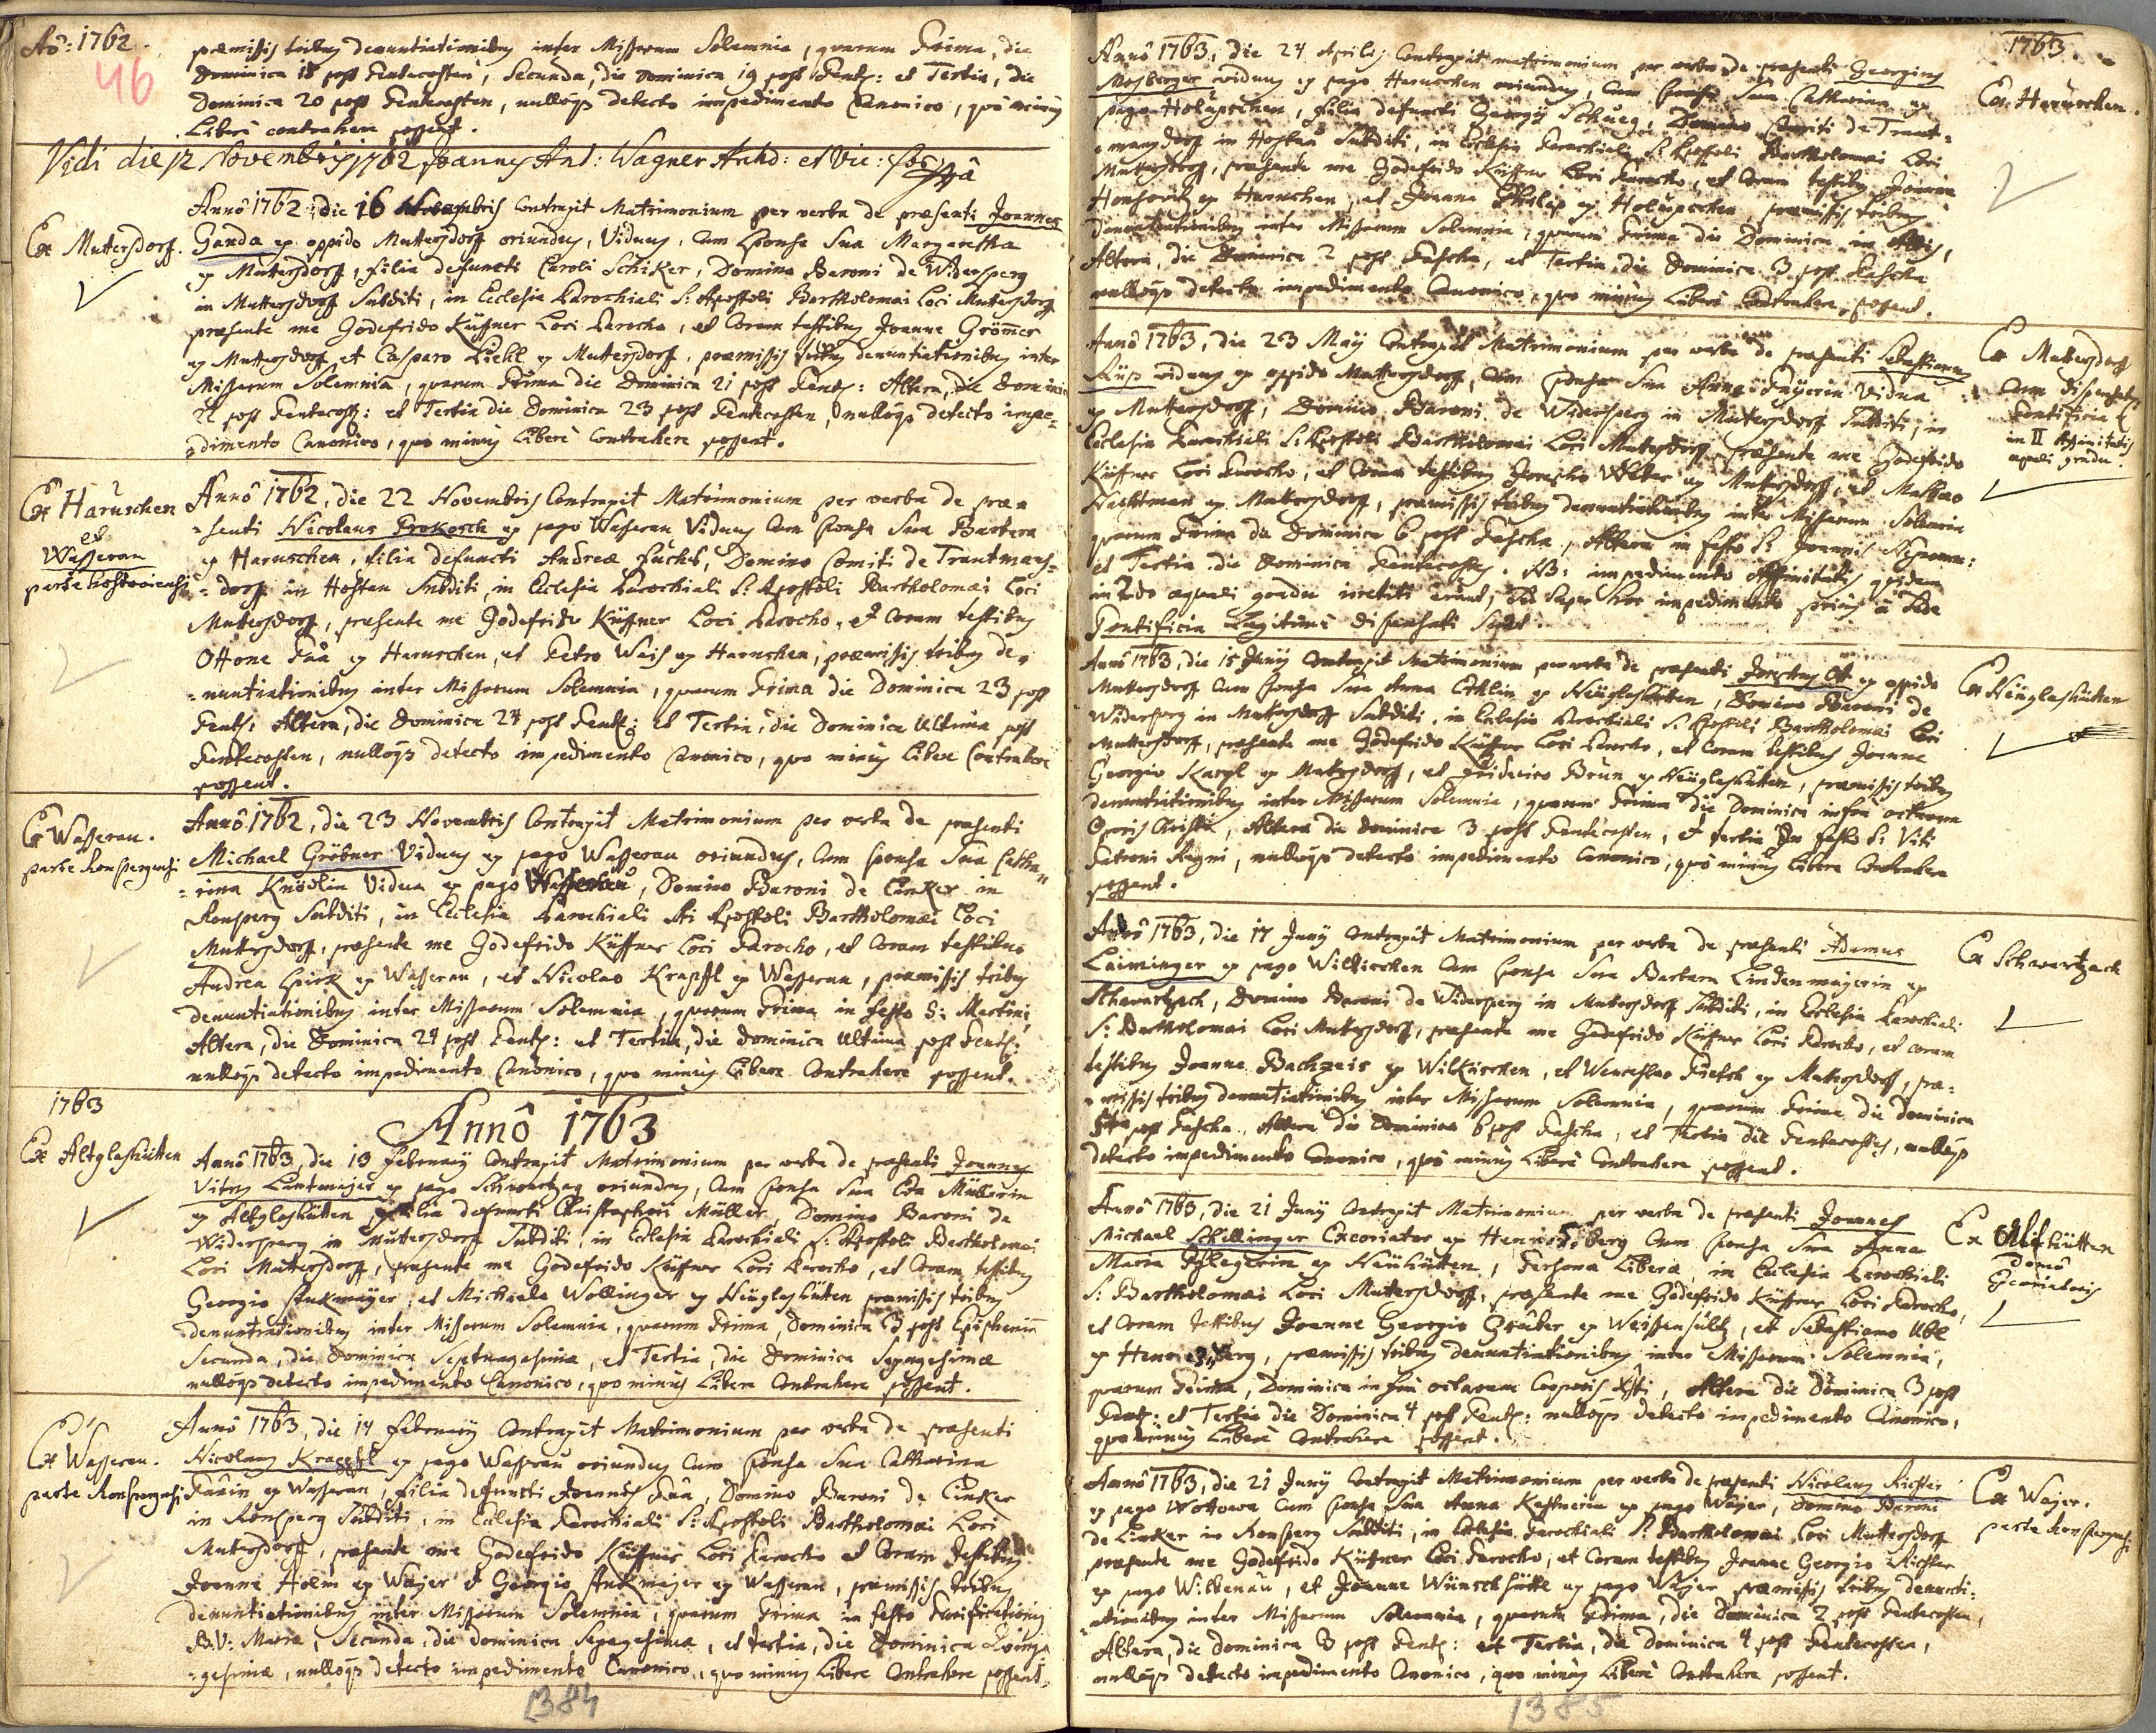 Aõ: 1762.
46
præmissis tribus denuntiationibus inter Missarum Solemnia, quarum Prima, die
Dominica 18 post Pentecosten, Secunda, die Dominica 19 post Pent: et Tertia, die
Dominica 20 post Pentecosten, nulloqs detecto impedimento Canonico, quô minùs
Liberè contrahere possent.
Vidi die 12 Novembris 1762 Joannes Ant: Wagner Archid: et Vic: For:
Ex Mutersdorf.
Annô 1762, die 16 Novembris Contraxit Matrimonium per verba de præsenti Joannes
Ganda ex oppido Muttersdorff oriundus, Viduus, Cum Sponsa Sua Margaretha
ex Muttersdorff, filia defuncti Caroli Schiker, Domino Baroni de Widersperg
in Muttersdorff Subditi, in Ecclesia Parochiali S: Apostoli Bartholomæi Loci Mutersdorff
præsente me Godefrido Küffner Loci Parocho, et Coram testibus Joanne Grömer
ex Muttersdorff, et Casparo Liehl ex Muttersdorff, præmissis tribus denuntiationibus inter
Missarum Solemnia, quarum Prima die Dominica 21 post Pent: Altera, die Dominica
22 post Pentecost: et Tertia die Dominica 23 post Pentecosten, nulloqs detecto impe=
=dimento Canonico, quo minùs Liberè Contrahere possent.
Ex Haruschen
et
Wasserau
parte hostoviensi
Annô 1762, die 22 Novembris Contraxit Matrimonium per verba de præ=
=senti Nicolaus Prokosch ex pago Wasserau Viduus Cum Sponsa Sua Barbara
ex Haruschen, filia defuncti Andreæ Fuchs, Domino Comiti de Trautmans=
=dorff in Hostau Subditi, in Ecclesia Parochiali S: Apostoli Bartholomæi Loci
Mutersdorff, præsente me Godefrido Küffner Loci Parocho, et Coram testibus
Ottone Paä ex Haruschen, et Petro Weis ex Haruschen, præmissis tribus de=
=nuntiationibus inter Missarum Solemnia, quarum Prima die Dominica 23 post
Pent: Altera, die Dominica 24 post Pent: et Tertia, die Dominica Ultima post
Pentecosten, nulloqs detecto impedimento Canonico, quo minùs Libere Contrahere
possent.
Ex Wasserau.
parte Ronspergensi
Annô 1762, die 23 Novembris Contraxit Matrimonium per verba de præsenti
Michael Gröbner Viduus ex pago Wasserau oriundus, Cum Sponsa Sua Catha=
=rina Knödlin Vidua ex pago Wasserau, Domino Baroni de Linker in
Ronsperg Subditi, in Ecclesia Parochiali Sti Apostoli Bartholomæi Loci
Muttersdorff, præsente me Godefrido Küffner Loci Parocho, et Coram testibus
Andrea Spirk ex Wasserau, et Nicolao Krapffl ex Wasserau, præmissis tribus
denuntiationibus inter Missarum Solemnia, quarum Prima in festo S: Martini
Altera, die Dominica 24 post Pent: et Tertia, die Dominica Ultima post Pent:
nulloqs detecto impedimento Canonico, quo minùs Libere Contrahere possent.
1763
Annô 1763
Ex Altglashütten
Annô 1763, die 13 February Contraxit Matrimonium per verba de præsenti Joannes
Vitus Lautmajer ex pago Schwartzag oriundus, Cum Sponsa Sua Eva Müllerin
ex Altglashütten filia defuncti Christophori Müller, Domino Baroni de
Widersperg in Muttersdorff Subditi, in Ecclesia Parochiali S: Apostoli Bartholomæi
Loci Muttersdorff, præsente me Godefrido Küffner Loci Parocho, et Coram testibus
Georgio Stukmajer, et Michaele Wollinger ex Neüglashütten præmissis tribus
denuntiationibus inter Missarum Solemnia, quarum Prima, Dominica 3 post Epiphaniã
Secunda, die Dominica Septuagesimæ, et Tertia, die Dominica Sexagesimæ
nulloqs detecto impedimento Canonico, quo minùs Libere Contrahere possent.
Ex Wasserau.
parte Ronspergensi
Annô 1763, die 14 February Contraxit Matrimonium per verba de præsenti
Nicolaus Krapffl ex pago Wasserau oriundus Cum Sponsa Sua Catharina
Paäin ex Wasserau, filia defuncti Joannis Paä, Domino Baroni de Linker
in Ronsperg Subditi, in Ecclesia Parochiali S: Apostoli Bartholomæi Loci
Mutersdorff, præsente me Godefrido Küffner Loci Parocho et Coram Testibus
Joanne Holm ex Wajer & Georgio Stukmajer ex Wasserau, præmissis tribus
denuntiationibus inter Missarum Solemnia, quarum Prima in festo Purificationis
B.V: Mariæ, Secunda, die dominica Sexagesimæ, et tertia, die Dominica Quinqua
=gesimæ, nulloqs detecto impedimento Canonico, quo minùs Libere Contrahere possent.
1384
1763.
Ex Haruschen.
Annô 1763, die 24 Aprilis Contraxit matrimonium per verba de præsenti Georgius
Mosberger viduus ex pago Haruschen oriundus, Cum Sponsa Sua Catharina ex
pago Holupschen, filia defuncti Georgÿ Schueg, Domino Comiti de Traut=
=mansdorff in Hostau Subditi, in Ecclesia Parochiali S: Apostoli Bartholomæi Loci
Muttersdorff, præsente me Godefrido Küffner Loci Parocho, et Coram testibus Joanne
ex Haruschen, et Joanne Philip ex Holupschen, præmissis tribus
Denuntiationibus inter Missarum Solemnia, quarum Prima die Dominica in Albis,
Altera, die Dominica 2 post Pascha, et Tertia, die Dominica 3 post Pascha
nulloqs detecto impedimento Canonico, quo minùs Liberè Contrahere possent.
Ex Mutersdorff
Cum dispensatione
Pontificia
in II Affinitatis
æquali gradu.
Annô 1763, die 23 Maÿ Contraxit Matrimonium per verba de præsenti Sebastianus
Rüps viduus ex oppido Muttersdorff, Cum Sponsa Sua Anna Vidua
ex Muttersdorff, Domino Baroni de Widersperg in Mutersdorff Subditi, in
Ecclesia Parochiali S: Apostoli Bartholomæi Loci Mutersdorff, præsente me Godefrido
Küffner Loci Parocho, et Coram testibus Josepho Weber ex Mutersdorff, et Matthæo
Nachtman ex Mutersdorff, præmissis tribus denuntiationibus inter Missarum Solemnia
quarum Prima die Dominica 6 post Pascha, Altera in festo S: Joannis Nepomu:
et Tertia die Dominica Pentecostes. NB: impedimento Affinitatis quidem
in 2do æquali gradu irretiti erant, sed super hoc impedimento priùs à Sede
Pontificia Legitimè dispensati sunt.
Ex Neüglashütten
Annô 1763, die 15 Junÿ Contraxit Matrimonium per verba de præsenti Josephus Ott ex oppido
Muttersdorff Cum Sponsa Sua Anna Ertlin ex Neüglashütten, Domino Baroni de
Widersperg in Mutersdorff Subditi, in Ecclesia Parochiali S: Apostoli Bartholomæi Loci
Muttersdorff, præsente me Godefrido Küffner Loci Parocho, et Coram testibus Joanne
Georgio Karpl ex Mutersdorff, et Friderico Brun ex Neüglashütten, præmissis tribus
denuntiationibus inter Missarum Solemnia, quarum Prima die Dominica infra octavam
Corporis Christi, Altera die Dominica 3 post Pentecosten, et tertia In festo S: Viti
Patroni Regni, nulloqs detecto impedimento Canonico, quô minùs Libere Contrahere
possent.
Ex Schwartzach
Annô 1763, die 17 Junÿ Contraxit Matrimonium per verba de præsenti Adamus
Laiminger ex pago Wilkirchen Cum Sponsa Sua Barbara Lindenmajerin ex
Schwartzach, Domino Baroni de Widersperg in Mutersdorff Subditi, in Ecclesia Parochiali
S: Bartholomæi Loci Mutersdorff, præsente me Godefrido Küffner Loci Parocho, et coram
testibus Joanne Bachzeis ex Wilkirchen, et Wenceslao Pietsch ex Mutersdorff, præ=
=missis tribus denuntiationibus inter Missarum Solemnia, quarum Prima die Dominica
5ta post Pascha, Altera die Dominica 6 post Pascha, et Tertia die Pentecostes, nulloqs
detecto impedimento Canonico, quô minùs Liberè Contrahere possent.
Ex Althütten
Domô
Excoriatoris
Annô 1763, die 21 Junÿ Contraxit Matrimonium per verba de præsenti Joannes
Michael Schillinger Excoriator ex Hennesberg Cum Sponsa Sua Anna
Maria Pflegerin ex Neühütten, Persona Libera, in Ecclesia Parochiali
S: Bartholomæi Loci Mutersdorff, præsente me Godefrido Küffner Loci Parocho,
et Coram Testibus Joanne Georgio Grüber ex Weissensultz, et Sebastiano Ubl
ex Hennesberg, præmissis tribus denuntiationibus inter Missarum Solemnia,
quarum Prima, Dominica infra octavam Corporis Xsti, Altera die Dominica 3 post
Pent: et Tertia die Dominica 4 post Pent: nulloqs detecto impedimento Canonico,
quo minùs Liberè Contrahere possent.
Ex Wajer.
parte Ronspergensi
Annô 1763, die 21 Junÿ Contraxit Matrimonium per verba de præsenti Nicolaus Richter
ex pago Wottowa Cum Sponsa Sua Anna Kestnerin ex pago Wajer, Domino Baroni
de Linker in Ronsperg Subditi, in Ecclesia Parochiali S: Bartholomæi Loci Muttersdorff
præsente me Godefrido Küffner Loci Parocho, et Coram testibus Joanne Georgio Richter
ex pago Wilkenau, et Joanne Wünschhütte ex pago Wajer præmissis tribus denunti=
=ationibus inter Missarum Solemnia, quarum Prima, die Dominica 2 post Pentecosten,
Altera, die Dominica 3 post Pent: et Tertia, die Dominica 4 post Pentecosten,
nulloqs detecto impedimento Canonico, quo minùs Liberè Contrahere possent.
1385